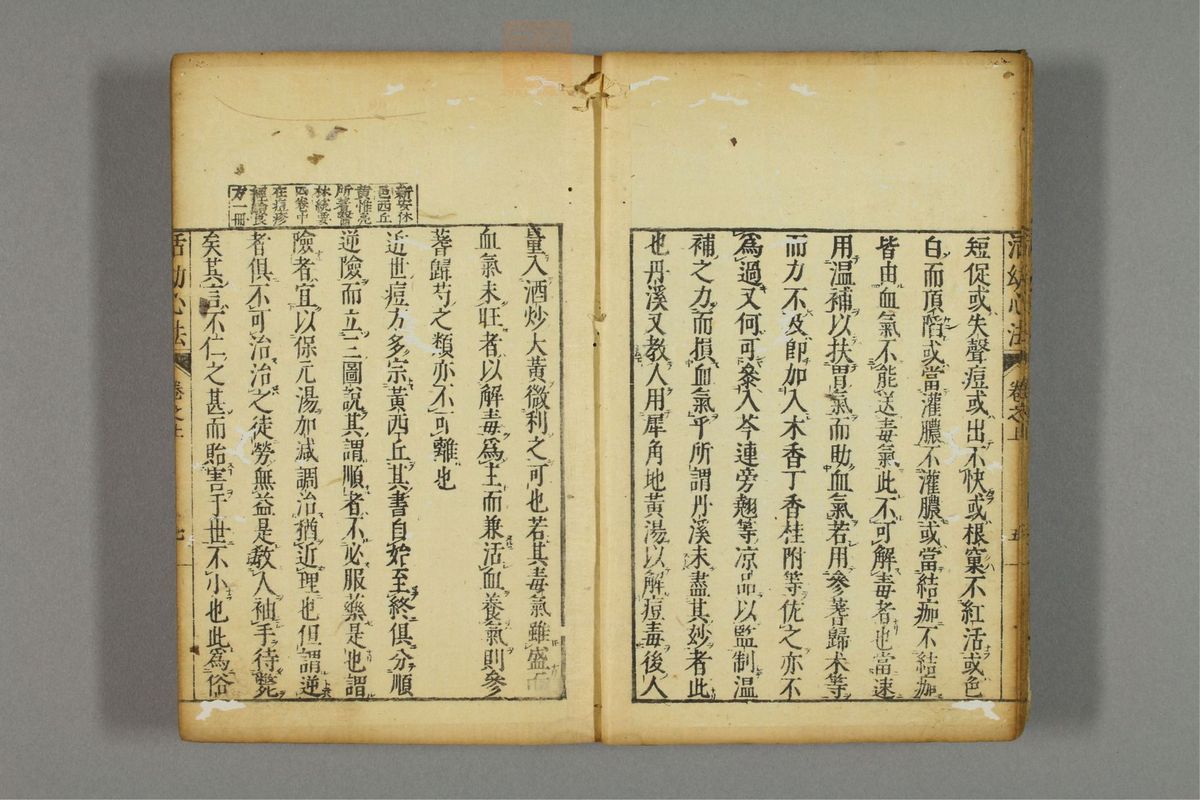 活幼心法
卷之
五
短促或失聲痘或出不快或根窠不紅活或色
白而頂陷或當灌膿不灌膿或當結痂不結痂
皆由血氣不能送毒氣此不可解毒者也當速
用溫補以扶胃氣而助血氣若用參蓍歸朮等
而力不及即加入木香丁香桂附等佐之亦不
為過又何可參入芩連旁翹等凉品以監制溫
補之力而損血氣乎所謂丹溪未盡其妙者此
也丹溪又教人用犀角地黃湯以解痘毒後人
量入酒炒大黃微利之可也若其毒氣雖盛而
血氣未旺者以解毒為主而兼活血養氣則參
蓍歸芍之類亦不可離也
新安休
邑西丘
黃惟亮
所著醫
林統要
四卷中
在痘疹
經驗良
方一冊
近世痘方多宗黃西丘其書自始至終俱分順
逆險而立三圖說其謂順者不必服藥是也謂
險者宜以保元湯加減調治猶近理也但謂逆
者俱不可治治之徒勞無益是敎人袖手待斃
矣其言不仁之甚而貽害于世不小也此為俗
活幼心法
卷之上
七